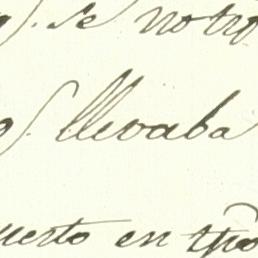 se notro
llevaba
uerto en tpo